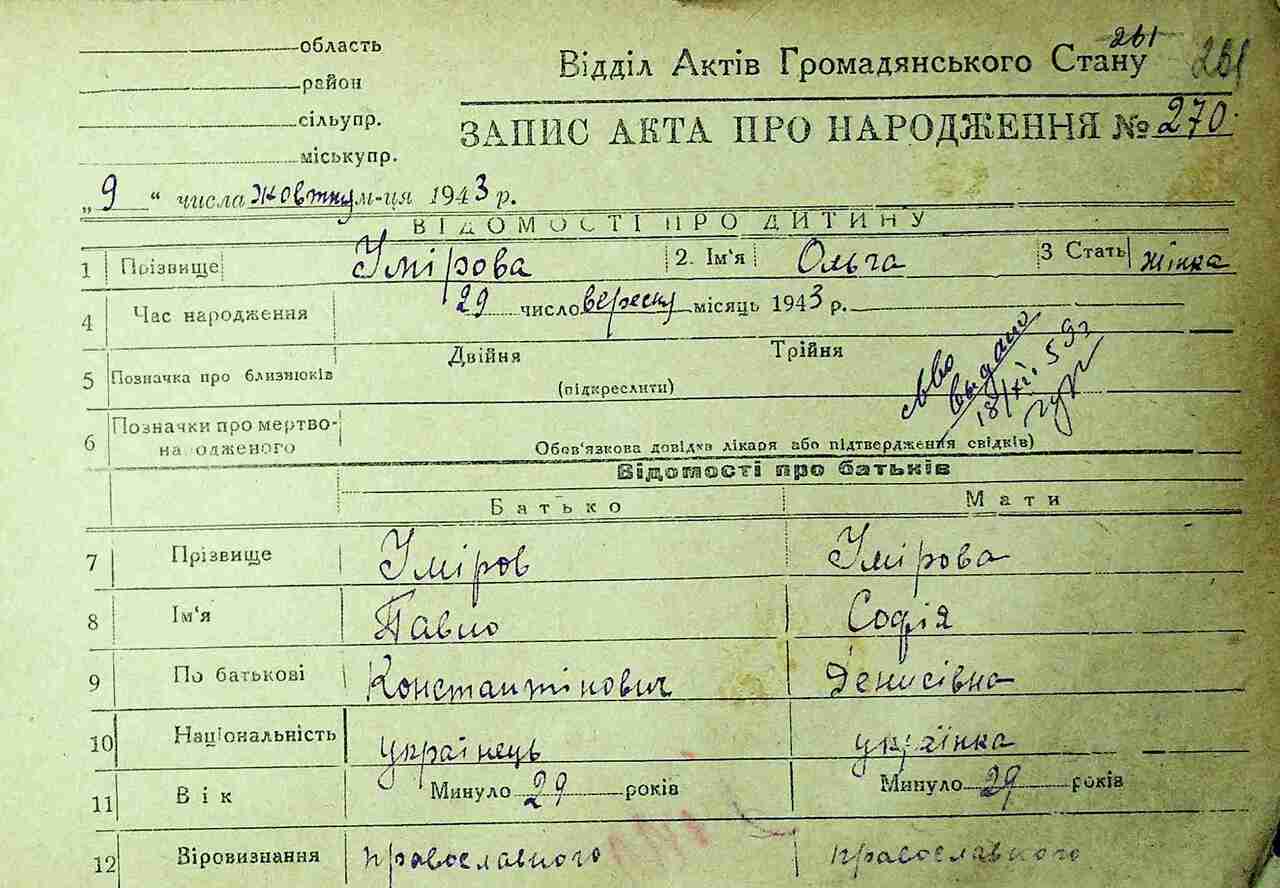 область
район
сільупр.
міськупр.
Відділ Актів Громадянського Стану
261
261
ЗАПИС АКТА ПРО НАРОДЖЕННЯ № 270
„9“ числа жовтня м-ця 1943 р.
ВІДОМОСТІ ПРО ДИТИНУ
1 Прізвище Умірова 2. Ім'я Ольга 3 Стать жінка
4 Час народження 29 число вересня місяць 1943 р.
5 Позначка про близнюків Двійня Трійня
(підкреслити)
выдано
18/XI. 59г
6 Позначки про мертво-
народженого Обов'язкова довідка лікаря або підтвердження свідків)
Відомості про батьків
Батько Мати
7 Прізвище Уміров Умірова
8 Ім'я Павло Софія
9 По батькові Константінович Денисівна
10 Національність українець українка
11 Вік Минуло 29 років Минуло 29 років
12 Віровизнання православного православного